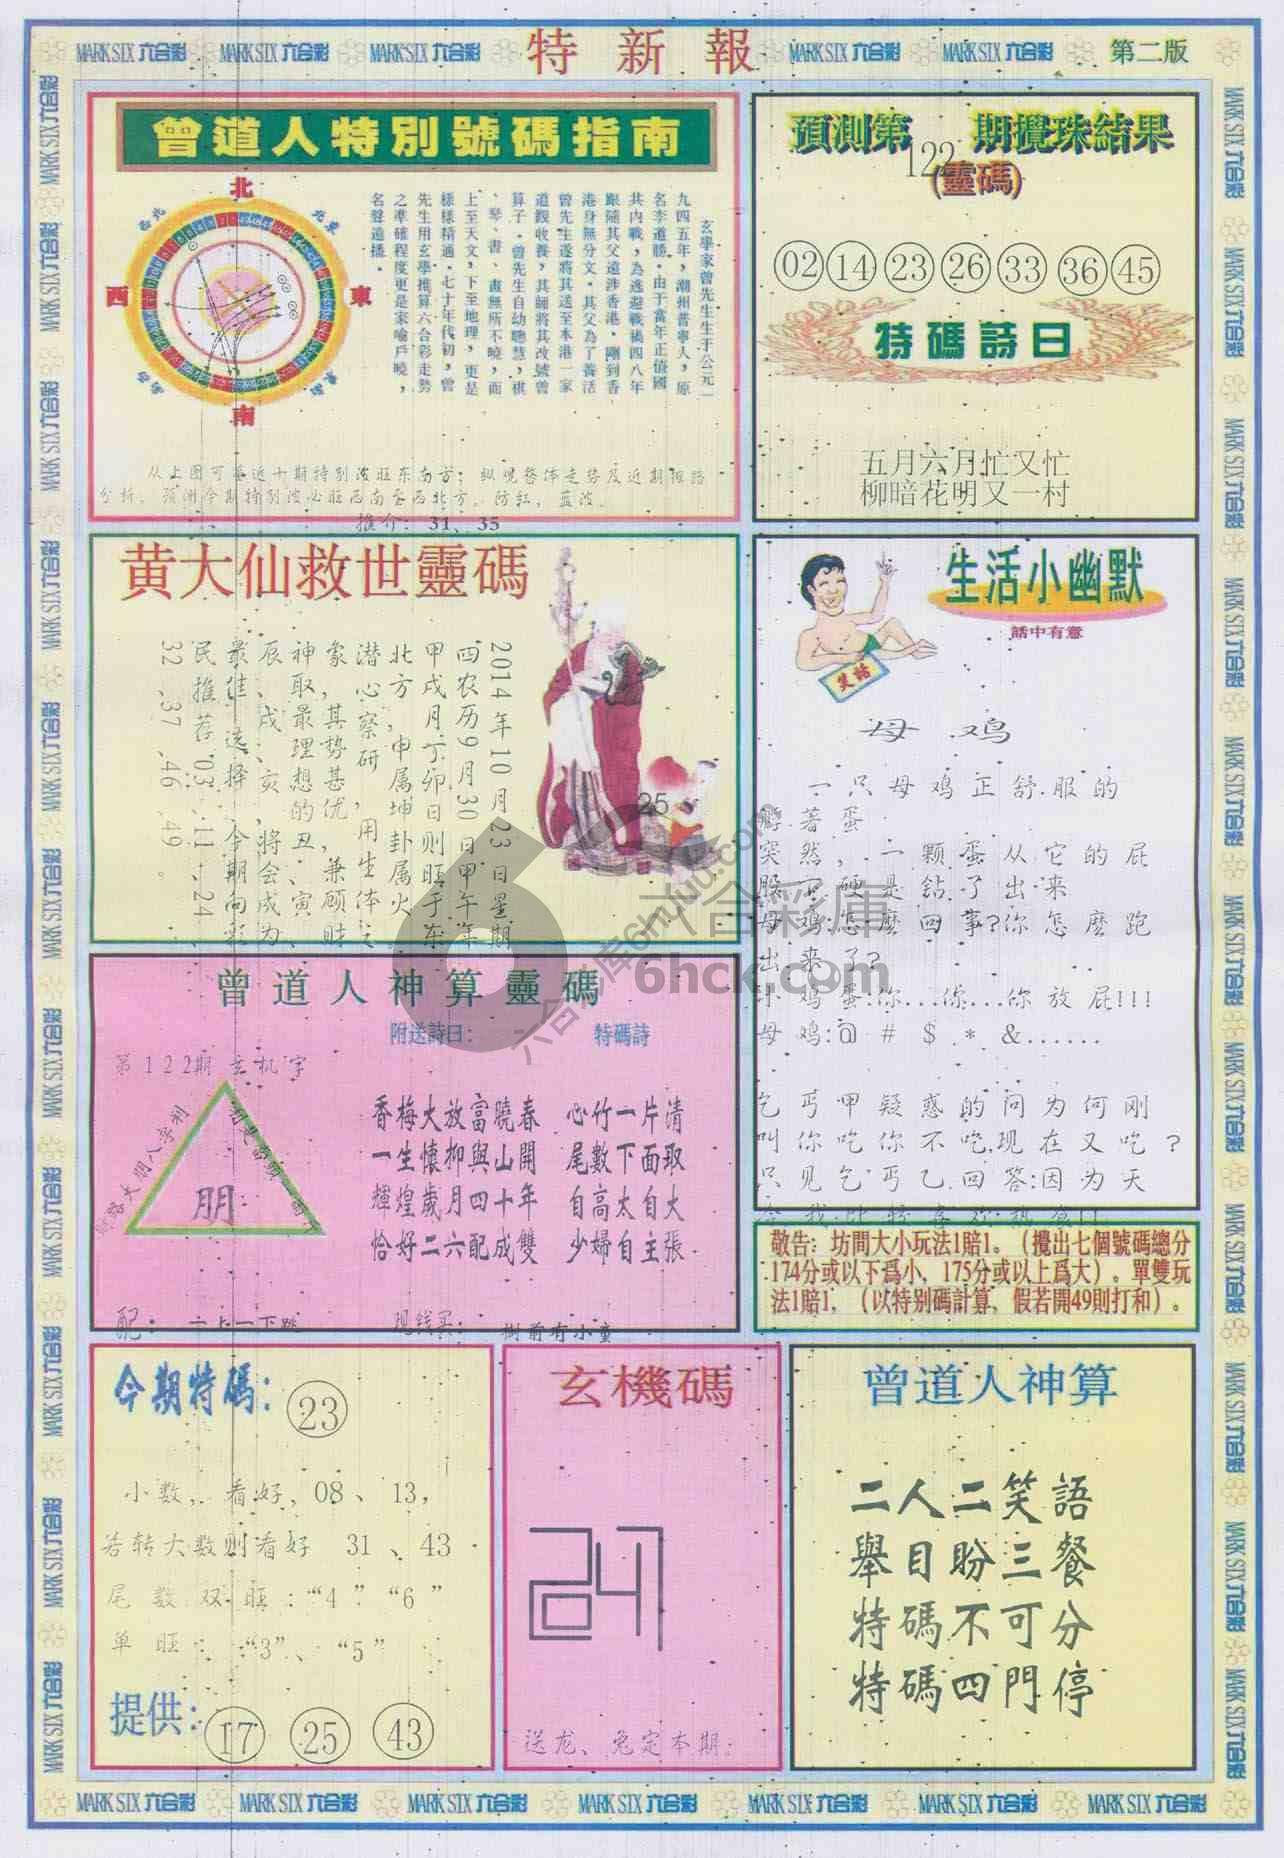 MARK SIX 六合彩
MARK SIX 六合彩
MARK SIX 六合彩
特新報
MARK SIX 六合彩
MARK SIX 六合彩
第二版
曾道人特別號碼指南
北
北東
東
南
西
西北
玄學家曾先生生于公元一
九四五年，潮州普寧人，原
名李道勝。由于當年正值國
共内戰，為逃避戰禍四八年
跟隨其父遠涉香港。剛到香
港身無分文。其父為了養活
曾先生遂將其送至本港一家
道觀收養，其師將其改號曾
算子。曾先生自幼聰慧，棋
、琴、書、畫無所不曉，而
上至天文，下至地理，更是
樣樣精通。七十年代初，曾
先生用玄學推算六合彩走勢
之準確程度更是家喻戶曉，
名聲遠播。
从上图可看近十期特别波旺东南方；纵观整体走势及近期
分析，预测今期特别波必旺西南至西北方。防红，蓝波。
推介：31、35
預測第122期攪珠結果
(靈碼)
02 14 23 26 33 36 45
特碼詩曰
五月六月忙又忙
柳暗花明又一村
黄大仙救世靈碼
2014年10月23日星期
四农历9月30日甲午年
甲戌月丁卯日则旺于东
北方，申属坤卦属火
潜心察研，用生体之
象，其势甚优，兼顾财
神取最理想的丑、寅、
辰、戌、亥，將会成为
最佳选择，今期向彩
民推荐03、11、24
32、37、46、49。
25
生活小幽默
話中有意
笑話
母鸡
一只母鸡正舒服的
孵著蛋
突然，一颗蛋从它的屁
股下硬是钻了出来
母鸡:怎麼回事?你怎麼跑
出来了?
小鸡蛋:你...你...你放屁!!!
母鸡:@#$*&......
乞丐甲疑惑的问为何刚
叫你吃你不吃,现在又吃?
只见乞丐乙回答:因为天
冷我比较喜欢热食!!
曾道人神算靈碼
附送詩曰：
特碼詩
第122期玄机字
朋
香梅大放富曉春
一生懷抑與山開
輝煌歲月四十年
恰好二六配成雙
心竹一片清
尾數下面取
自高太自大
少婦自主張
配：一上一下跳
现钱买：树前有小童
敬告：坊間大小玩法1賠1。（攪出七個號碼總分
174分或以下爲小，175分或以上爲大）。單雙玩
法1賠1，（以特别碼計算，假若開49則打和）。
今期特碼：23
小数，看好，08、13，
若转大数则看好31、43
尾数双旺：“4”“6”
单旺：“3”、“5”
提供：17 25 43
玄機碼
送龙、兔定本期：
曾道人神算
二人二笑語
舉目盼三餐
特碼不可分
特碼四門停
六合彩庫
6hck.com
MARK SIX 六合彩
MARK SIX 六合彩
MARK SIX 六合彩
MARK SIX 六合彩
MARK SIX 六合彩
MARK SIX 六合彩
MARK SIX 六合彩